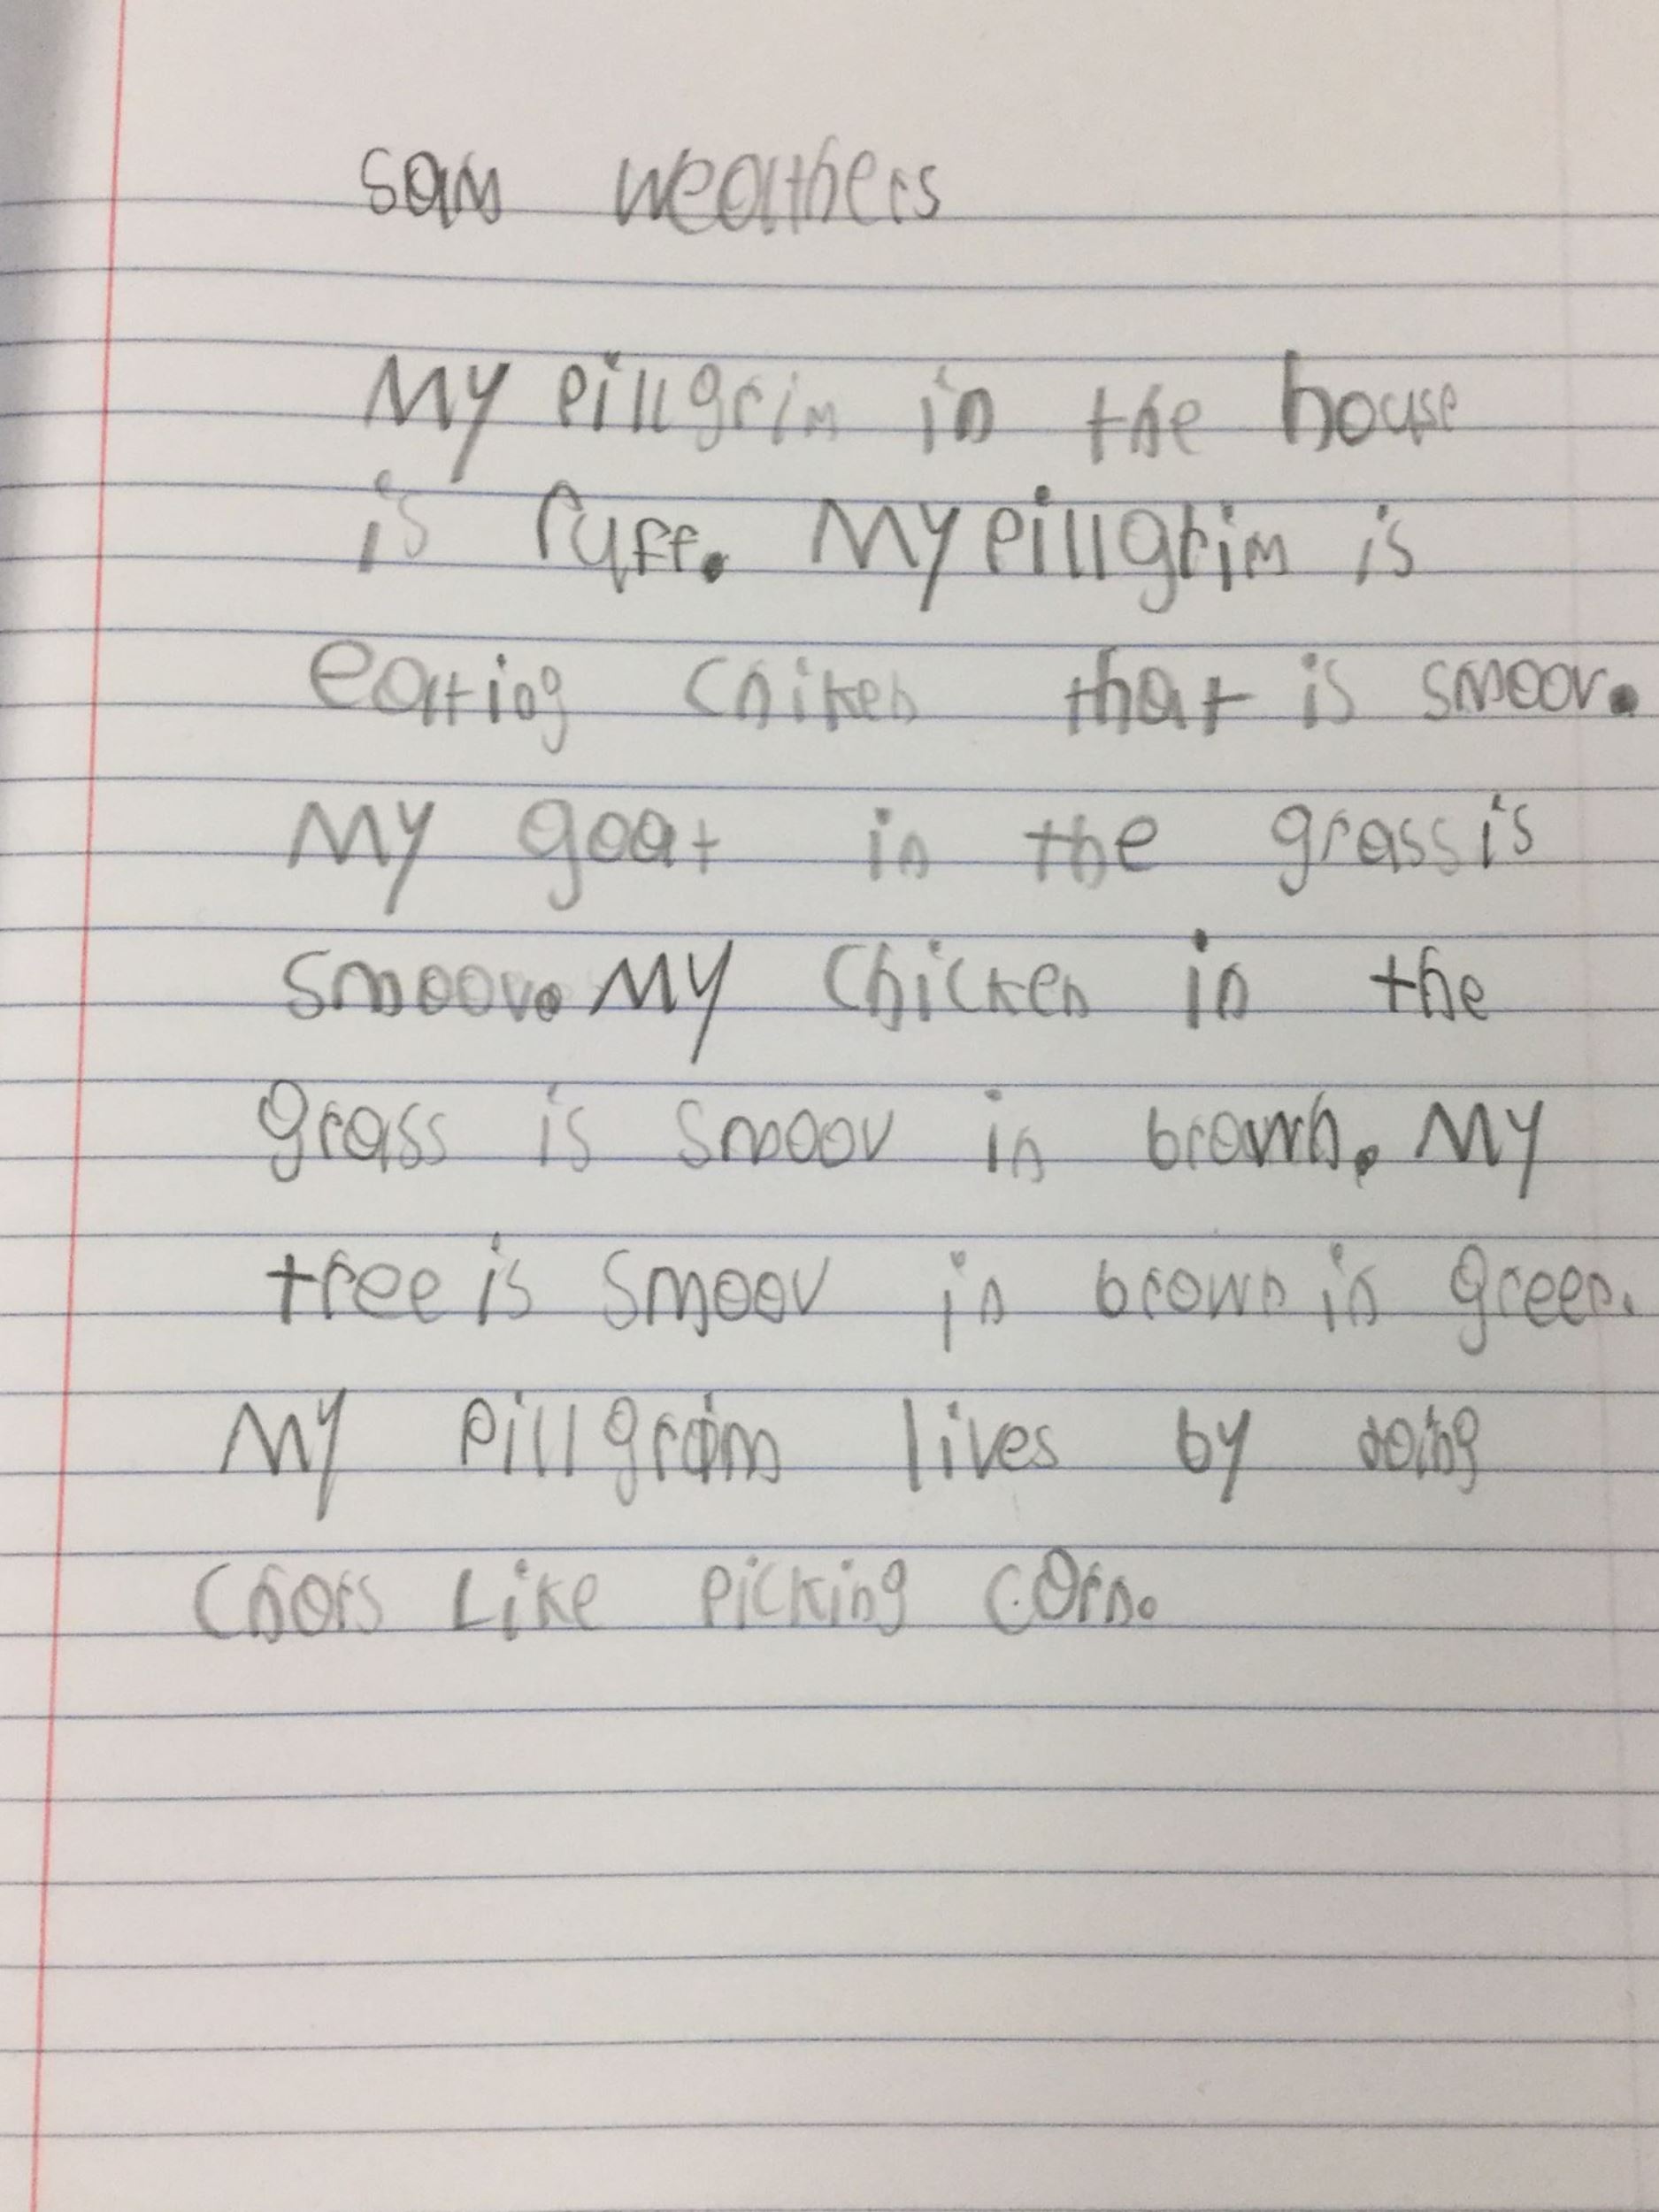 sam weathers
My pillgrim in the house
is ruff. My pillgrim is
eating chiken that is smoov.
My goat in the grass is
smoov. My chicken in the
grass is smoov in brown. My
tree is smoov in brown in green.
My pillgrim lives by doing
chors Like picking corn.